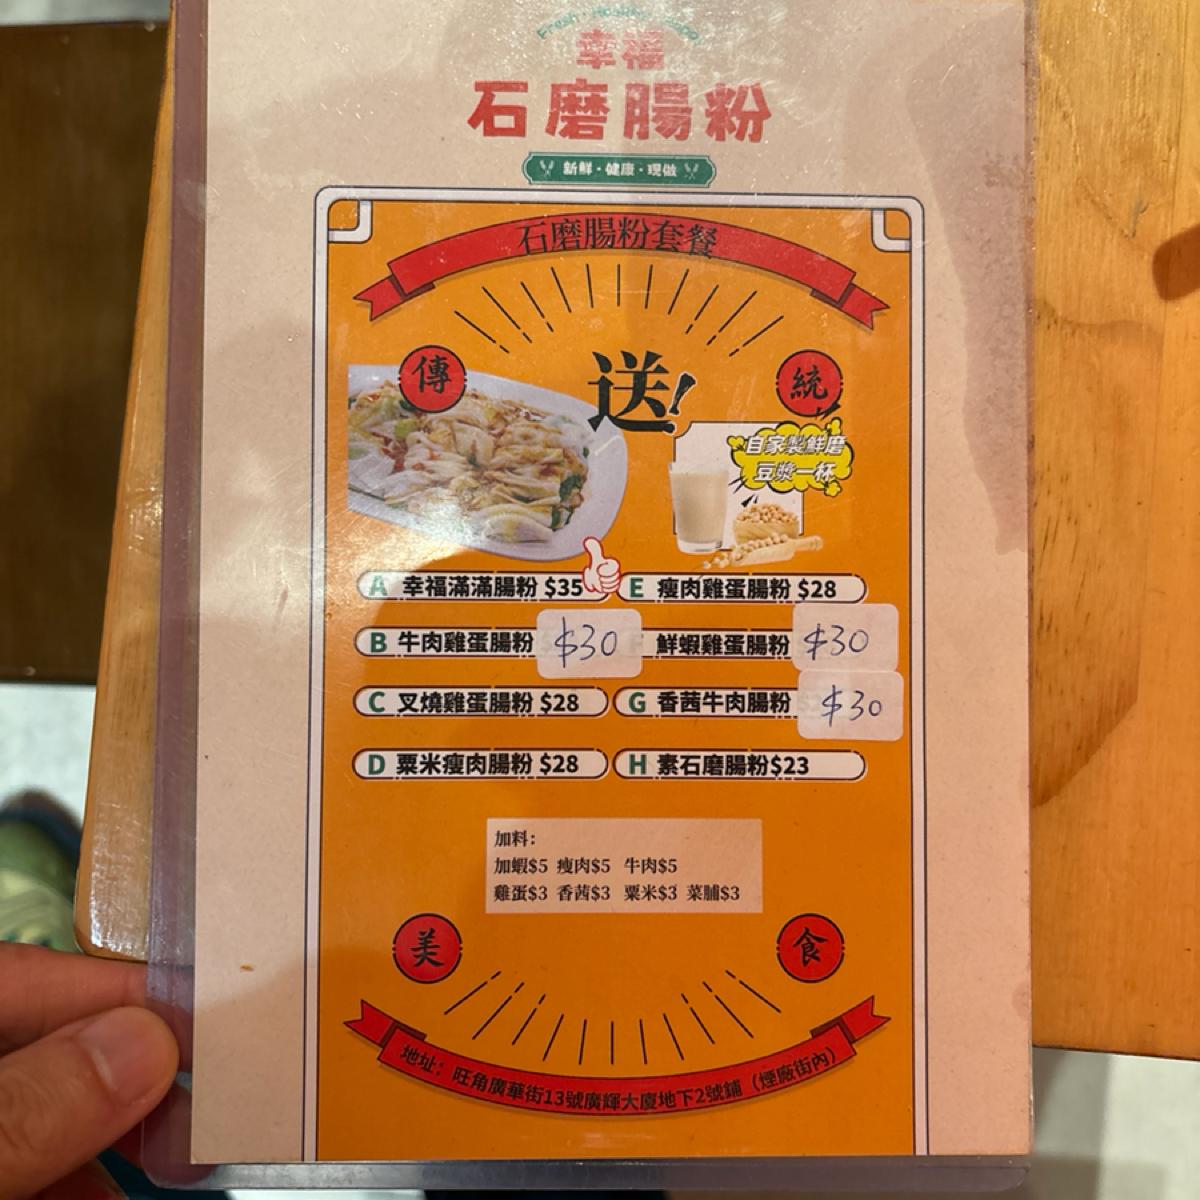 Fresh · Healthy ·
幸福
石磨腸粉
新鮮·健康·現做
石磨腸粉套餐
傳
送!
統
自家製鮮磨
豆漿一杯
A 幸福滿滿腸粉 $35
E 瘦肉雞蛋腸粉 $28
B 牛肉雞蛋腸粉 $30
F 鮮蝦雞蛋腸粉 $30
C 叉燒雞蛋腸粉 $28
G 香茜牛肉腸粉 $30
D 粟米瘦肉腸粉 $28
H 素石磨腸粉$23
加料:
加蝦$5 瘦肉$5 牛肉$5
雞蛋$3 香茜$3 粟米$3 菜脯$3
美
食
地址：旺角廣華街13號廣輝大廈地下2號鋪（煙廠街內）